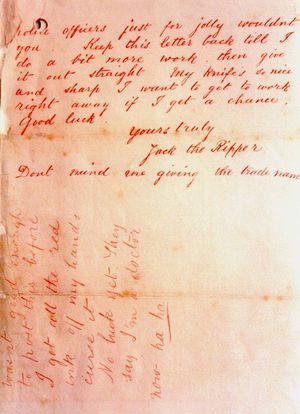 police officers just for jolly wouldnt
you. Keep this letter back till I
do a bit more work. then give
it out straight My knife's so nice
and sharp I want to get to work
right away if I get a chance.
Good luck.
Yours truly
Jack the Ripper
Dont mind me giving the trade name
wasnt good enough
to post this before
I got all the red
ink off my hands
curse it
No luck yet. They
say I'm a doctor
now ha ha